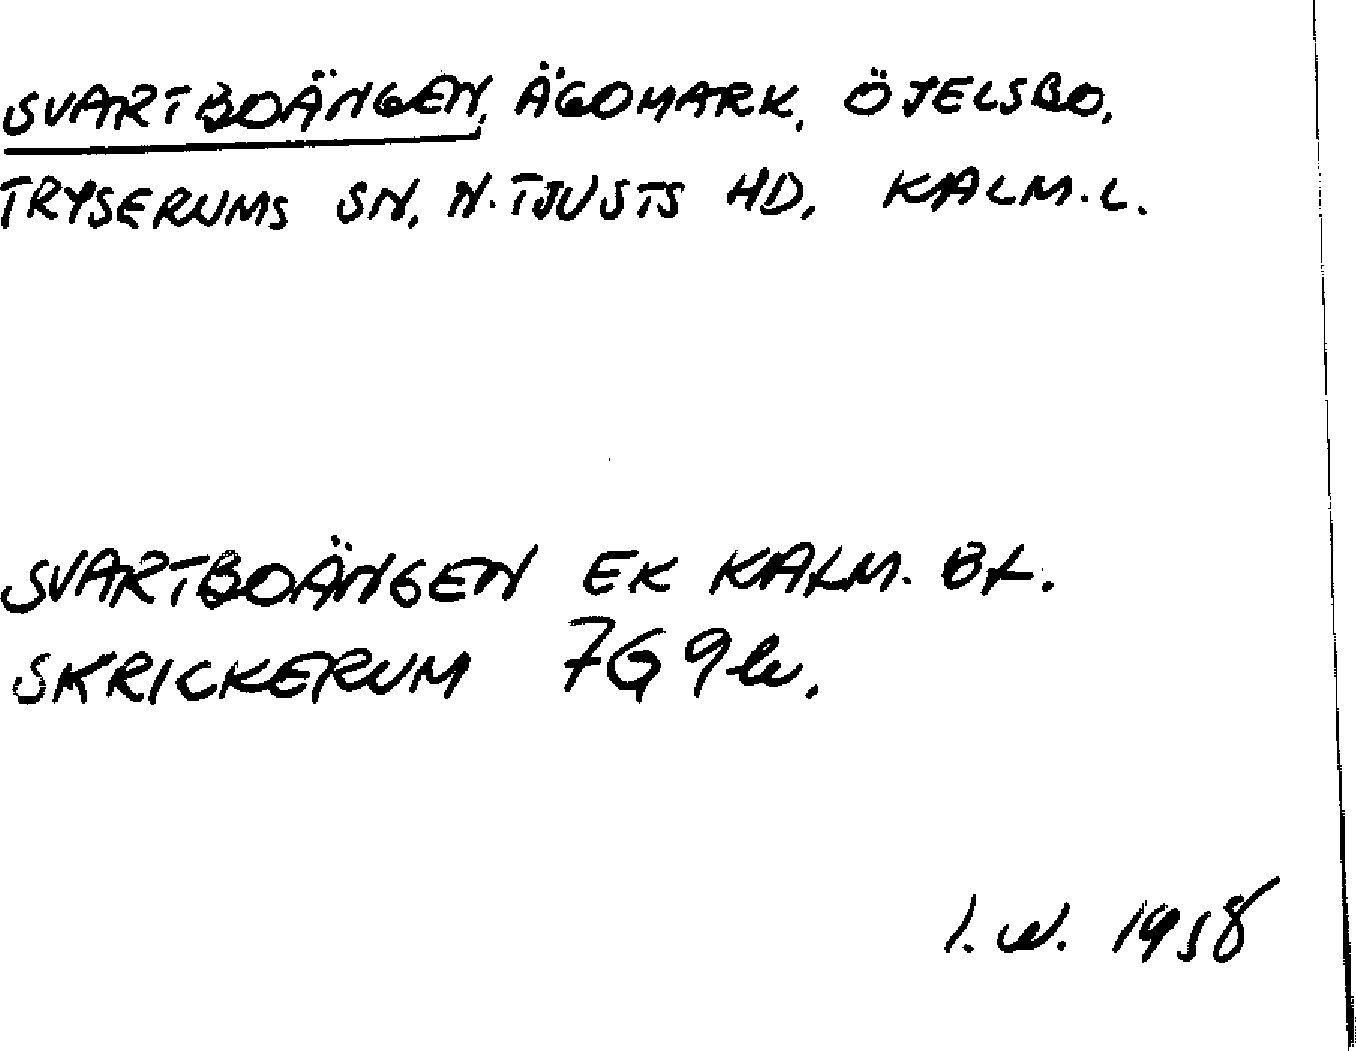 SVARTBOÄNGEN, ÄGOMARK, ÖJELSBO,
TRYSERUMS SN, N. TJUSTS HD, KALM. L.
SVARTBOÄNGEN EK KALM. BL.
SKRICKERUM 7G9
I. W. 1958